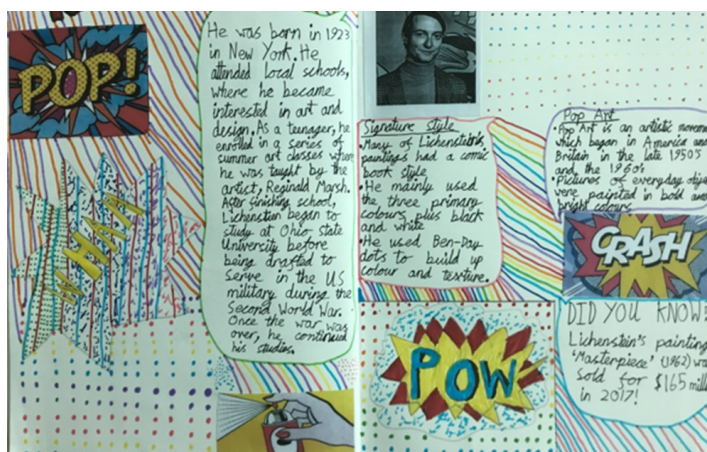 POP!
WHAM
He was born in 1923
in New York. He
attended local schools,
where he became
interested in art and
design. As a teunager, he
enrolled in a series of
summer art classes where
he was taught by the
artist, Reginald Marsh.
After finishing school,
Lichenstien began to
study at Ohio state
University before
being drafted to
serve in the US
military during the
Second World War.
Once the war was
over, he continued
his studies.
Signature style
•Many of Lichenstein's
paintings had a comic
book style
•He mainly used
the three primary
colours plus black
and white
•He used Ben-Day
dots to build up
colour and texture.
POW
Pop Art
•Pop Art is an artistic movem
which began in America and
Britain in the late 1950s
and the 1960s
•Pictures of everyday obje
were painted in bold and
bright colours
CRASH
DID YOU KNOW?
Lichenstein's painting
'Masterpiece' (1962) wa
Sold for $165 mill
in 2017!